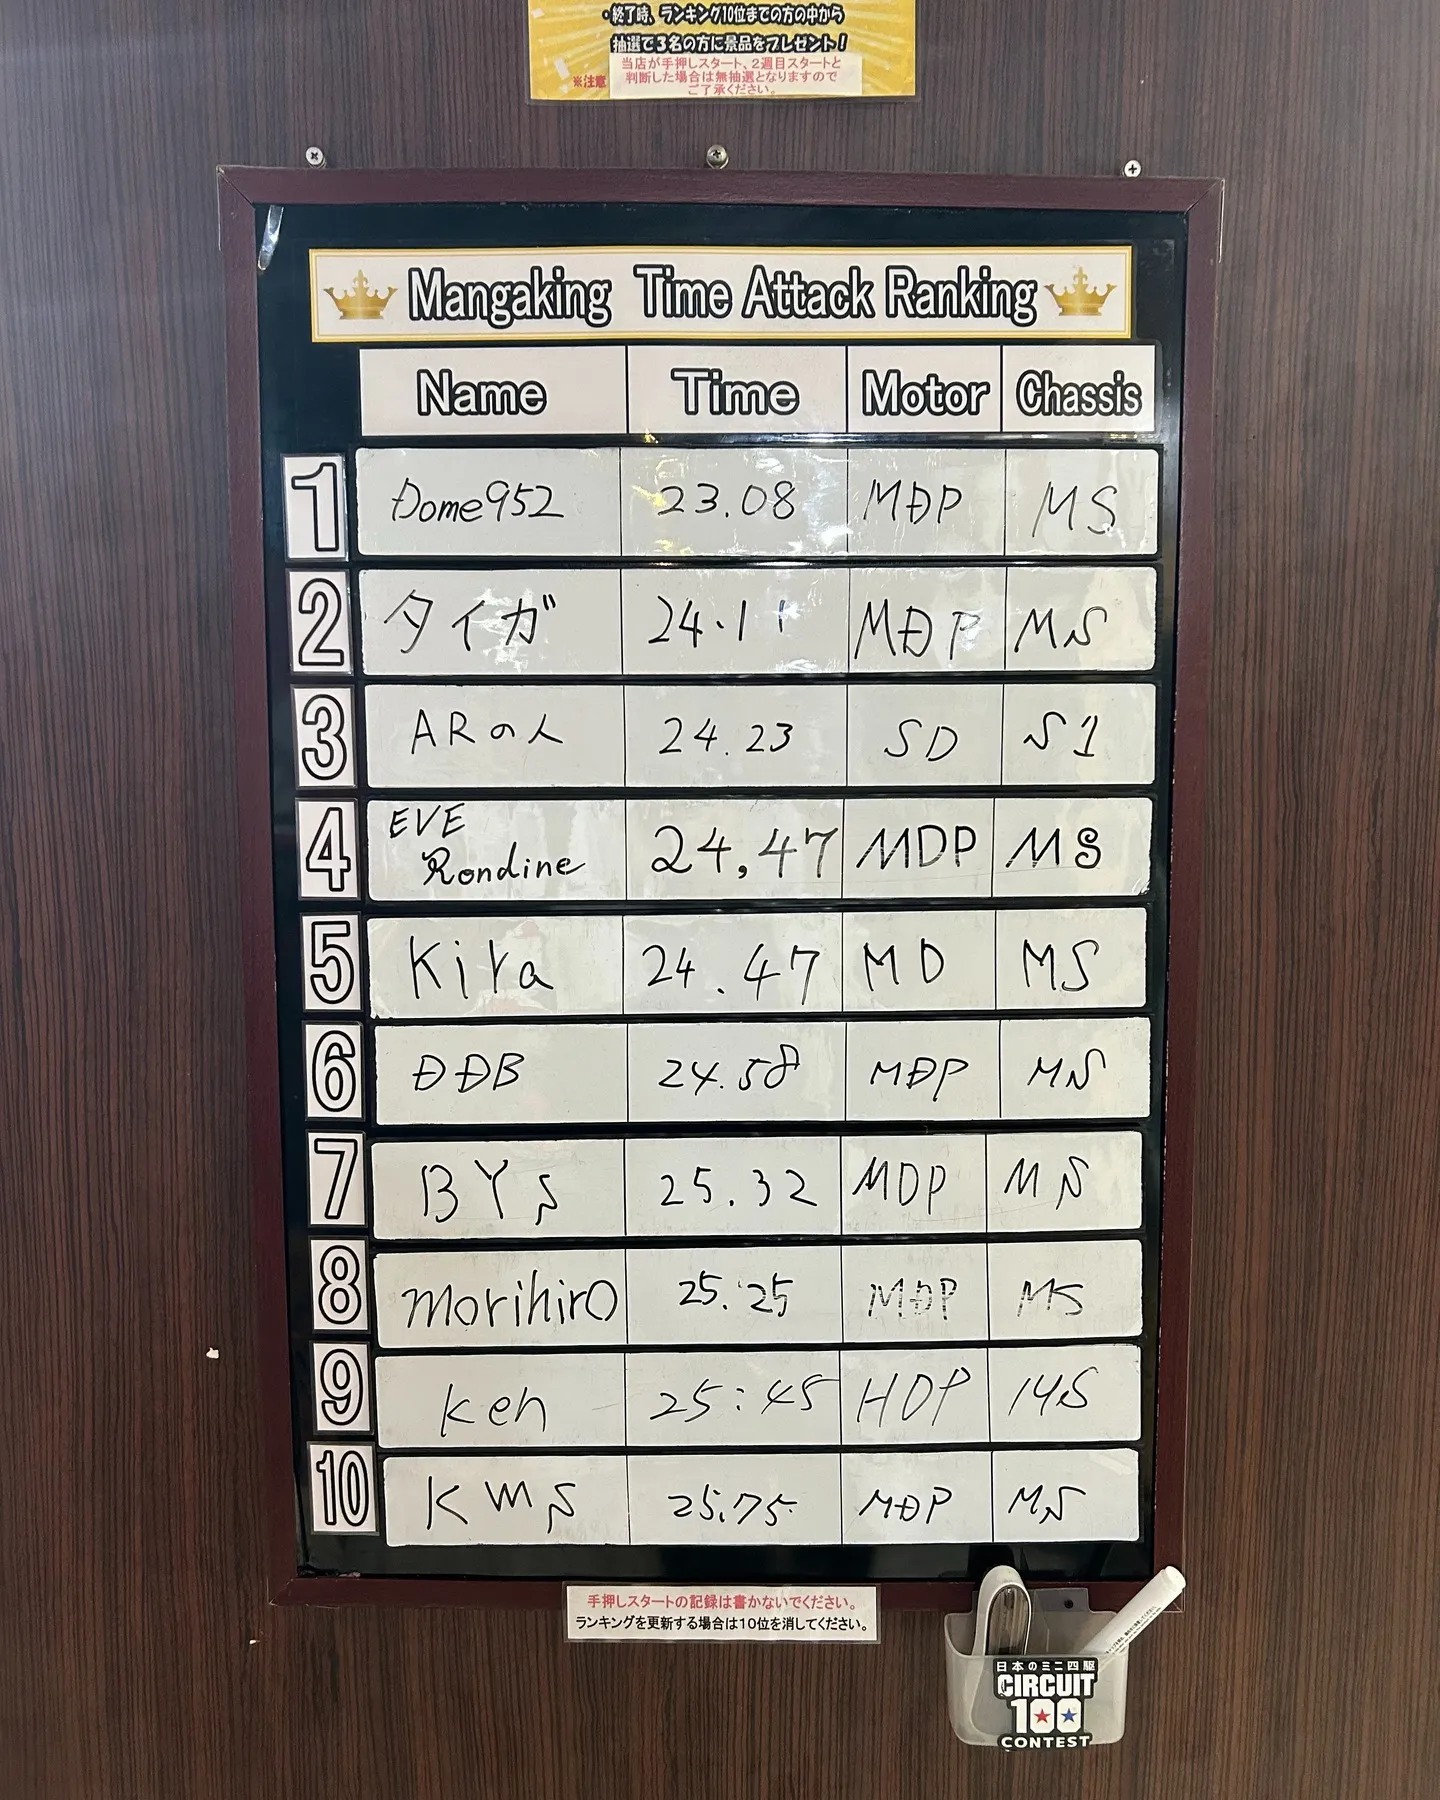 ・終了時、ランキング10位までの方の中から
抽選で3名の方に景品をプレゼント！
※注意
当店が手押しスタート、2週目スタートと
判断した場合は無抽選となりますので
ご了承ください。
Mangaking Time Attack Ranking
Name Time Motor Chassis
1 Dome952 23.08 MDP MS
2 タイガ 24.11 MDP MS
3 ARの人 24.23 SD S1
4 EVE
Rondine 24,47 MDP MS
5 Kira 24.47 MD MS
6 DDB 24.58 MDP MS
7 BYS 25.32 MDP MS
8 morihirO 25.25 MDP MS
9 Ken 25:45 HDP MS
10 KWS 25.75 MDP MS
手押しスタートの記録は書かないでください。
ランキングを更新する場合は10位を消してください。
日本のミニ四駆
CIRCUIT
100
CONTEST